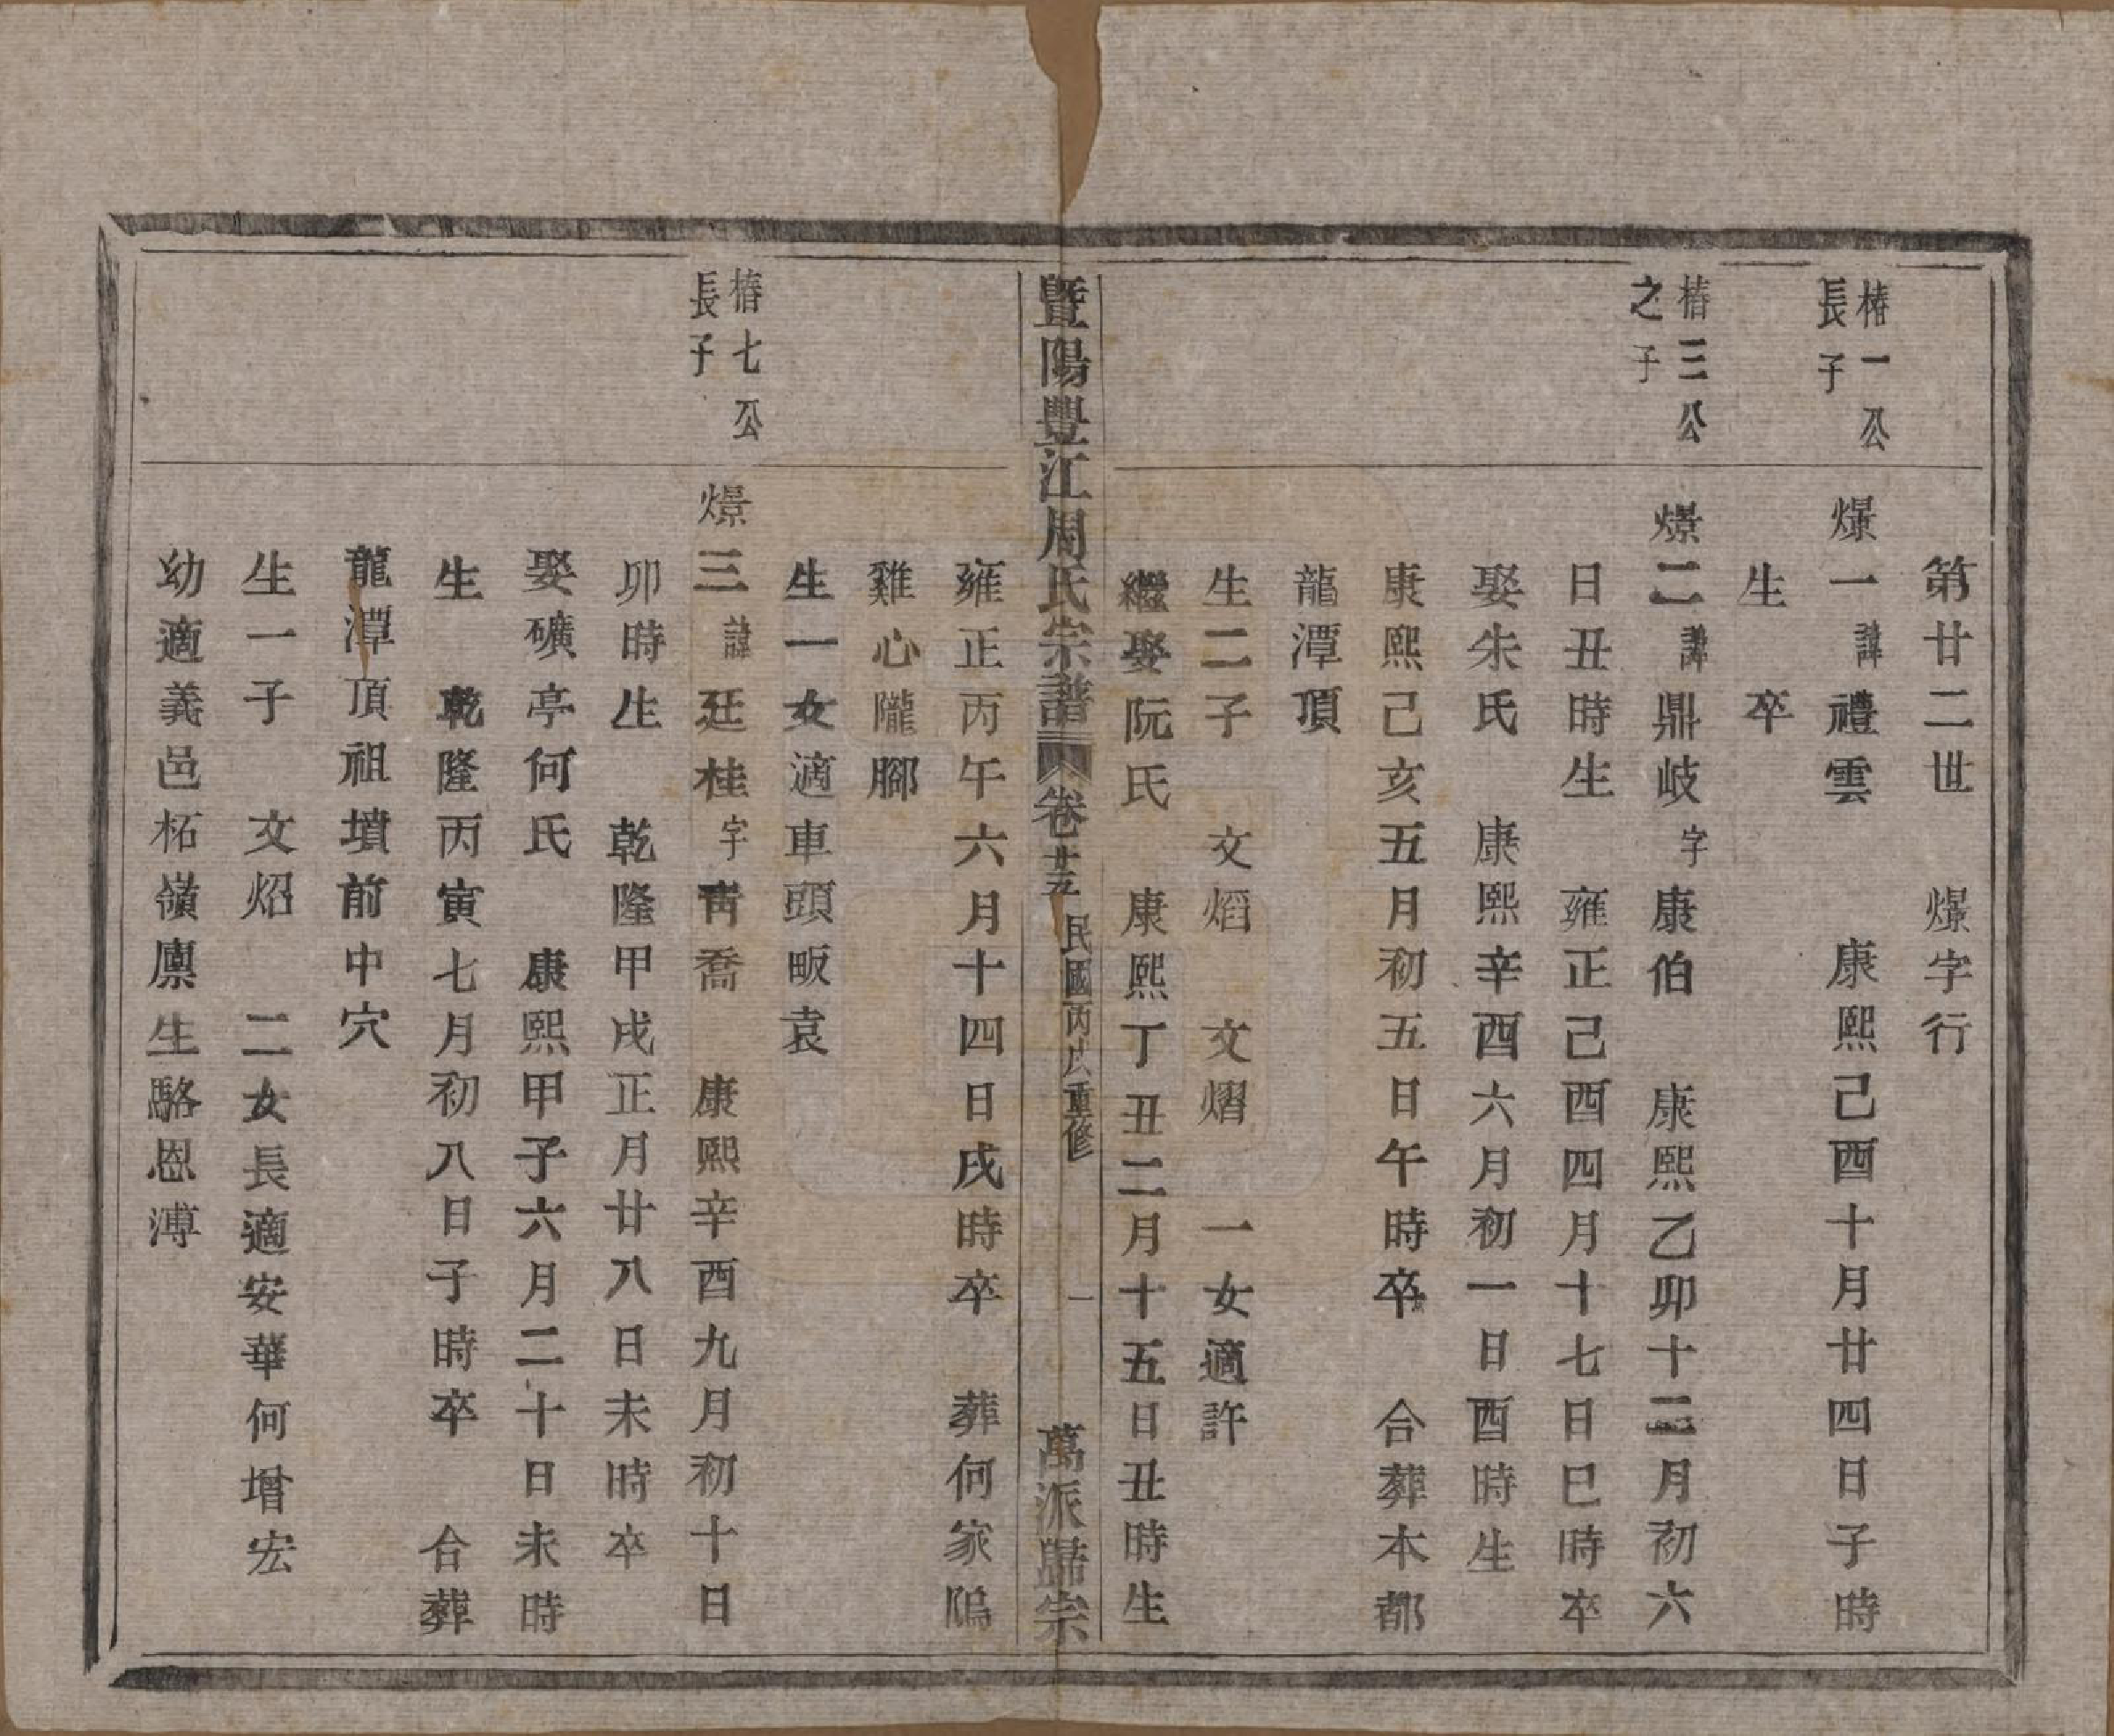 第廿二世　燝字行
椿一公
長子
燝一諱禮雲　康熙己酉十月廿四日子時
生　卒
椿三公
之子
燝二諱鼎岐字康伯　康熙乙卯十二月初六
日丑時生　雍正己酉四月十七日巳時卒
娶朱氏　康熙辛酉六月初一日酉時生
康熙己亥五月初五日午時卒　合葬本都
龍潭頂
生二子　文熖　文熠　一女適許
繼娶阮氏　康熙丁丑二月十五日丑時生
暨陽豐江周氏宗譜　卷廿五　民國丙戌重修　一　萬派歸宗
雍正丙午六月十四日戌時卒　葬何家隖
雞心隴腳
生一女適車頭畈袁
椿七公
長子
燝三諱廷桂字靑喬　康熙辛酉九月初十日
卯時生　乾隆甲戌正月廿八日未時卒
娶礦亭何氏　康熙甲子六月二十日未時
生　乾隆丙寅七月初八日子時卒　合葬
龍潭頂祖墳前中穴
生一子　文炤　二女長適安華何增宏
幼適義邑柘嶺廪生駱恩溥